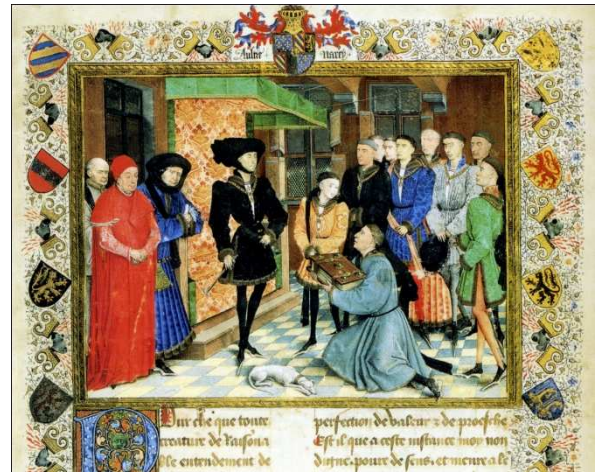 Aultre Narey
POur che que toute
creature de Raisona
ble entendement de
perfection de valeur z de proesche
Est il que a ceste instance moy non
digne, poure de sens, et menre a le